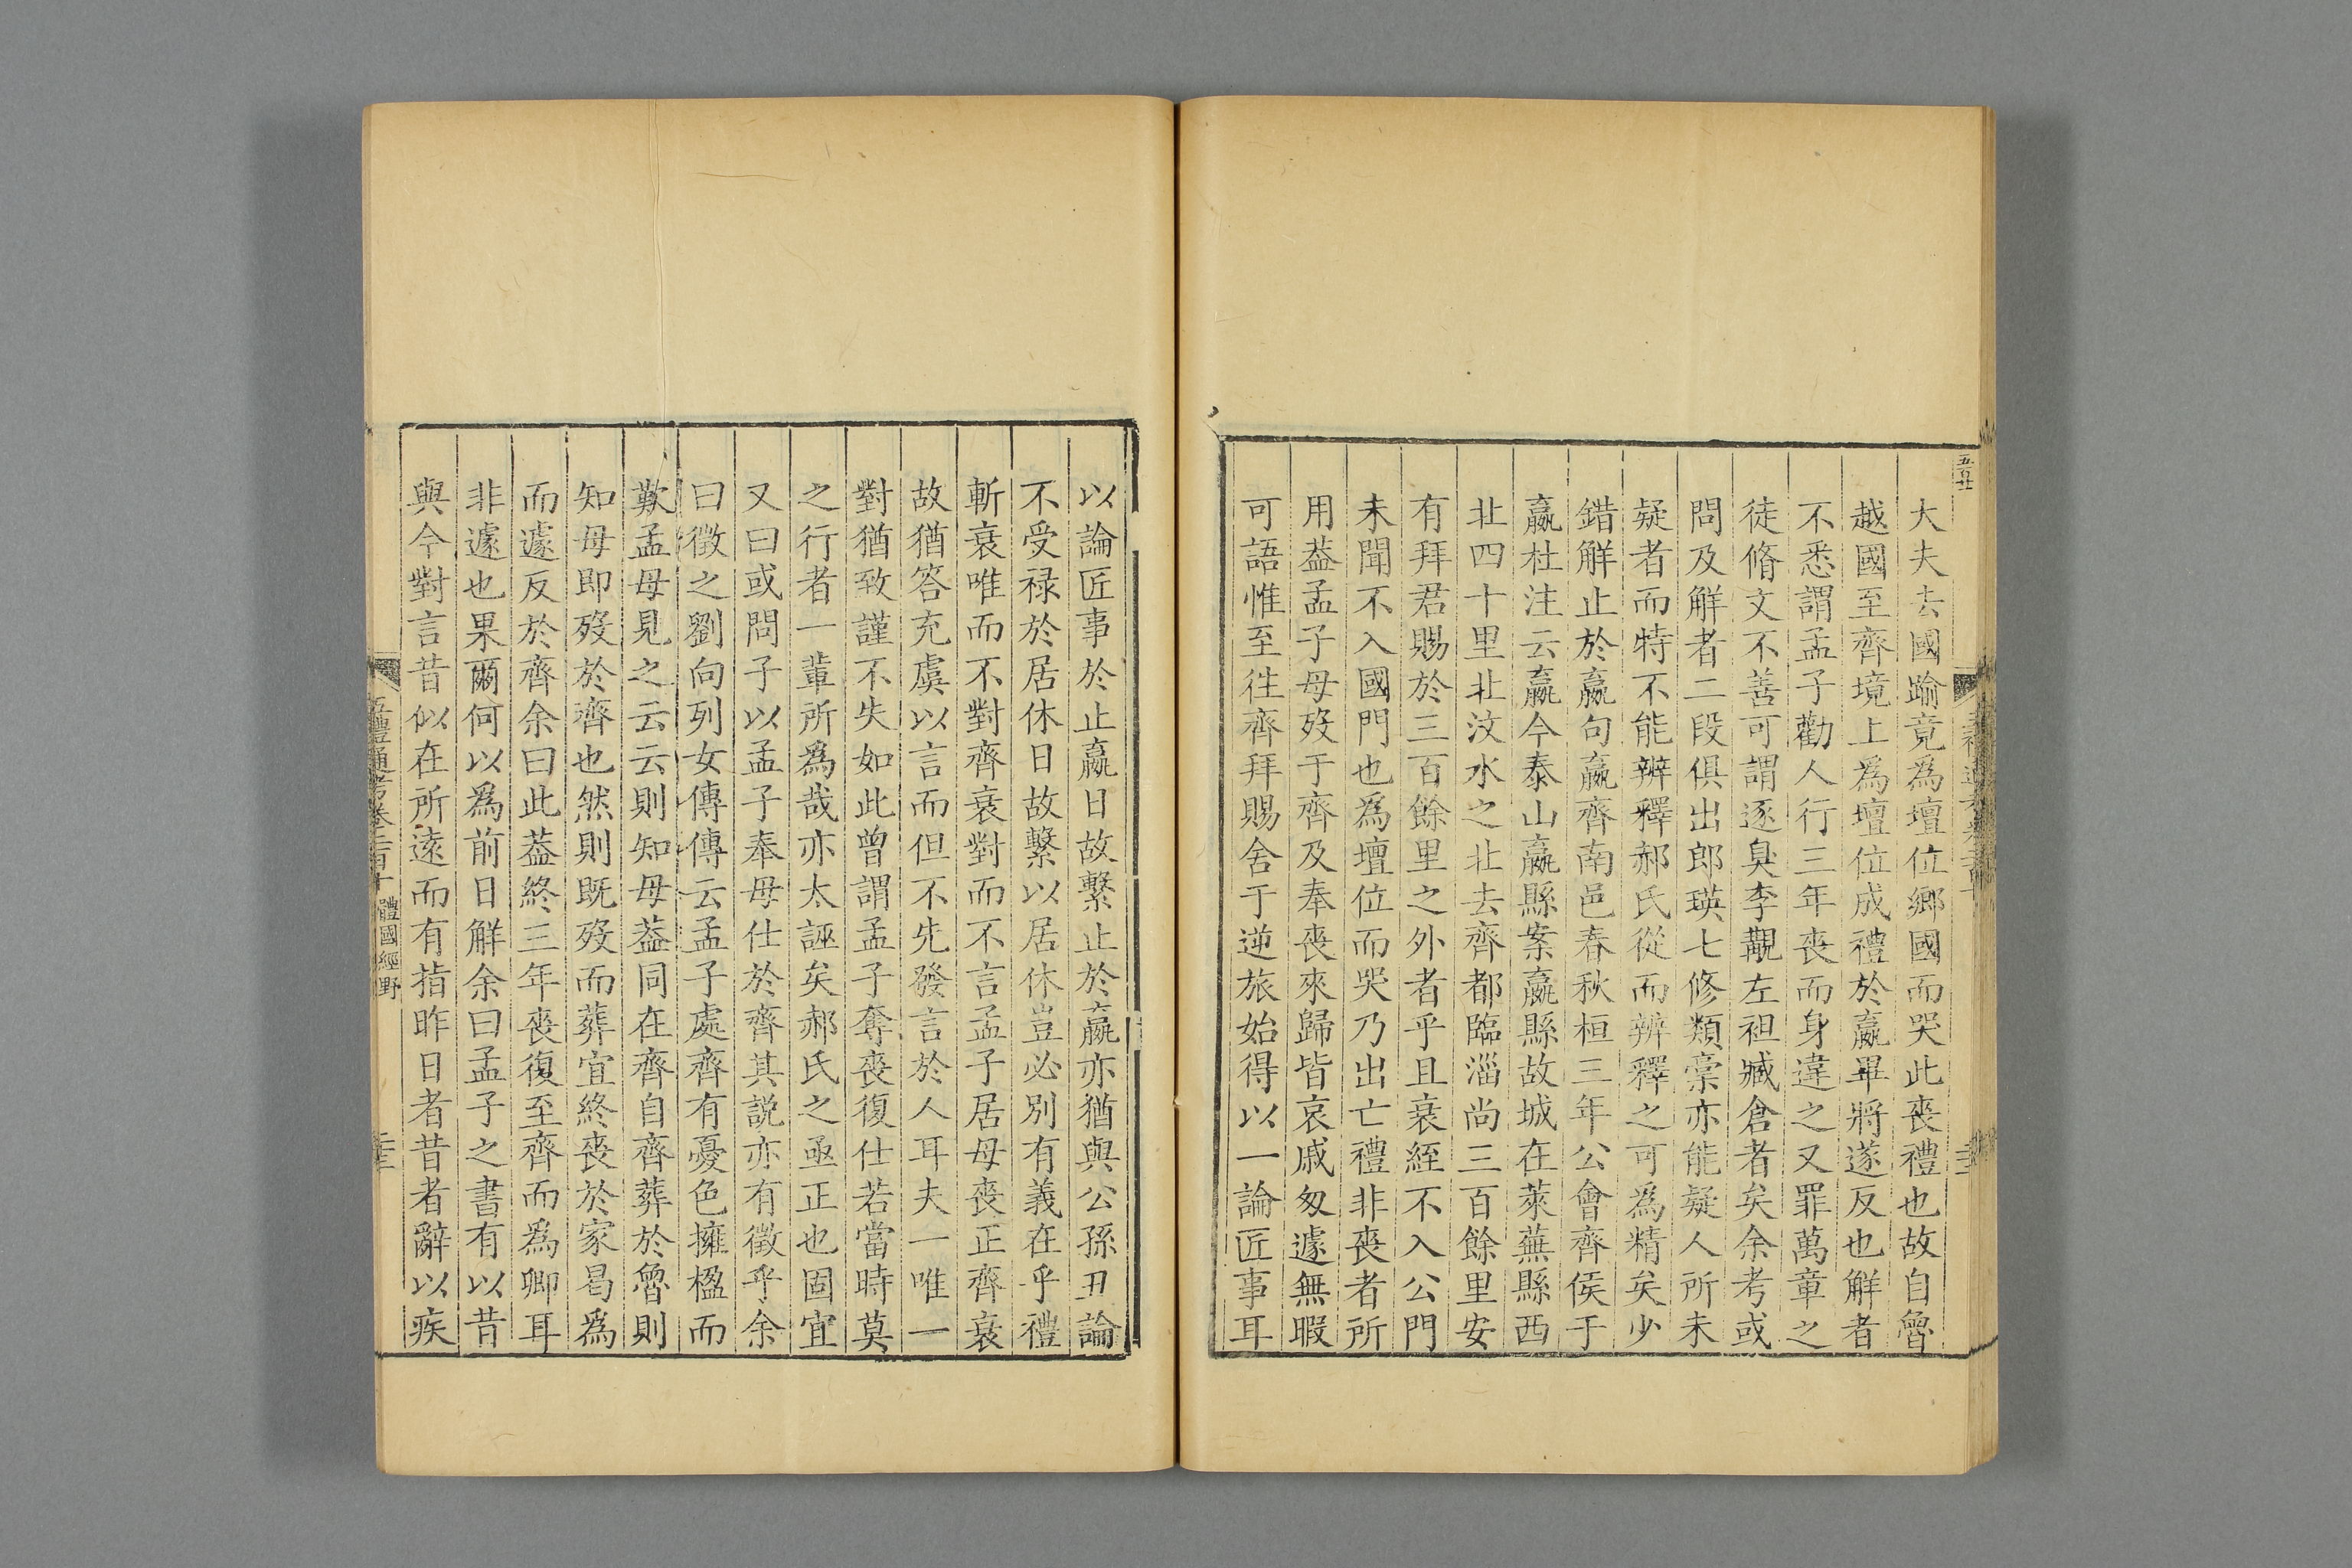 大夫去國踰竟爲壇位鄉國而哭此喪禮也故自魯
越國至齊境上爲壇位成禮於嬴畢將遂反也解者
不悉謂孟子勸人行三年喪而身違之又罪萬章之
徒脩文不善可謂逐臭李覯左袒臧倉者矣余考或
問及解者二段俱出郎瑛七修類稾亦能疑人所未
疑者而特不能辨釋郝氏從而辨釋之可爲精矣少
錯解止於嬴句嬴齊南邑春秋桓三年公會齊侯于
嬴杜注云嬴今泰山嬴縣案嬴縣故城在萊蕪縣西
北四十里北汶水之北去齊都臨淄尚三百餘里安
有拜君賜於三百餘里之外者乎且衰絰不入公門
未聞不入國門也爲壇位而哭乃出亡禮非喪者所
用葢孟子母歿于齊及奉喪來歸皆哀戚匆遽無暇
可語惟至往齊拜賜舍于逆旅始得以一論匠事耳
以論匠事於止嬴日故繫止於嬴亦猶與公孫丑論
不受禄於居休日故繫以居休豈必別有義在乎禮
斬衰唯而不對齊衰對而不言孟子居母喪正齊衰
故猶答充虞以言而但不先發言於人耳夫一唯一
對猶致謹不失如此曾謂孟子奪喪復仕若當時莫
之行者一輩所爲哉亦太誣矣郝氏之亟正也固宜
又曰或問子以孟子奉母仕於齊其説亦有徵乎余
曰徵之劉向列女傳傳云孟子處齊有憂色擁楹而
歎孟母見之云云則知母葢同在齊自齊葬於魯則
知母即歿於齊也然則既歿而葬宜終喪於家曷爲
而遽反於齊余曰此葢終三年喪復至齊而爲卿耳
非遽也果爾何以爲前日解余曰孟子之書有以昔
與今對言昔似在所遠而有指昨日者昔者辭以疾
五禮通考卷二百十 體國經野